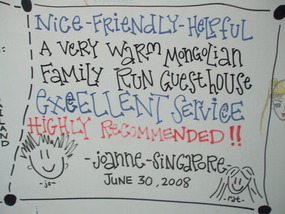 Nice-Friendly-Helpful
A Very Warm Mongolian
Family Run Guesthouse
Excellent Service
Highly Recommended!!
-Jeanne-Singapore-
June 30, 2008
-je-
-nat-